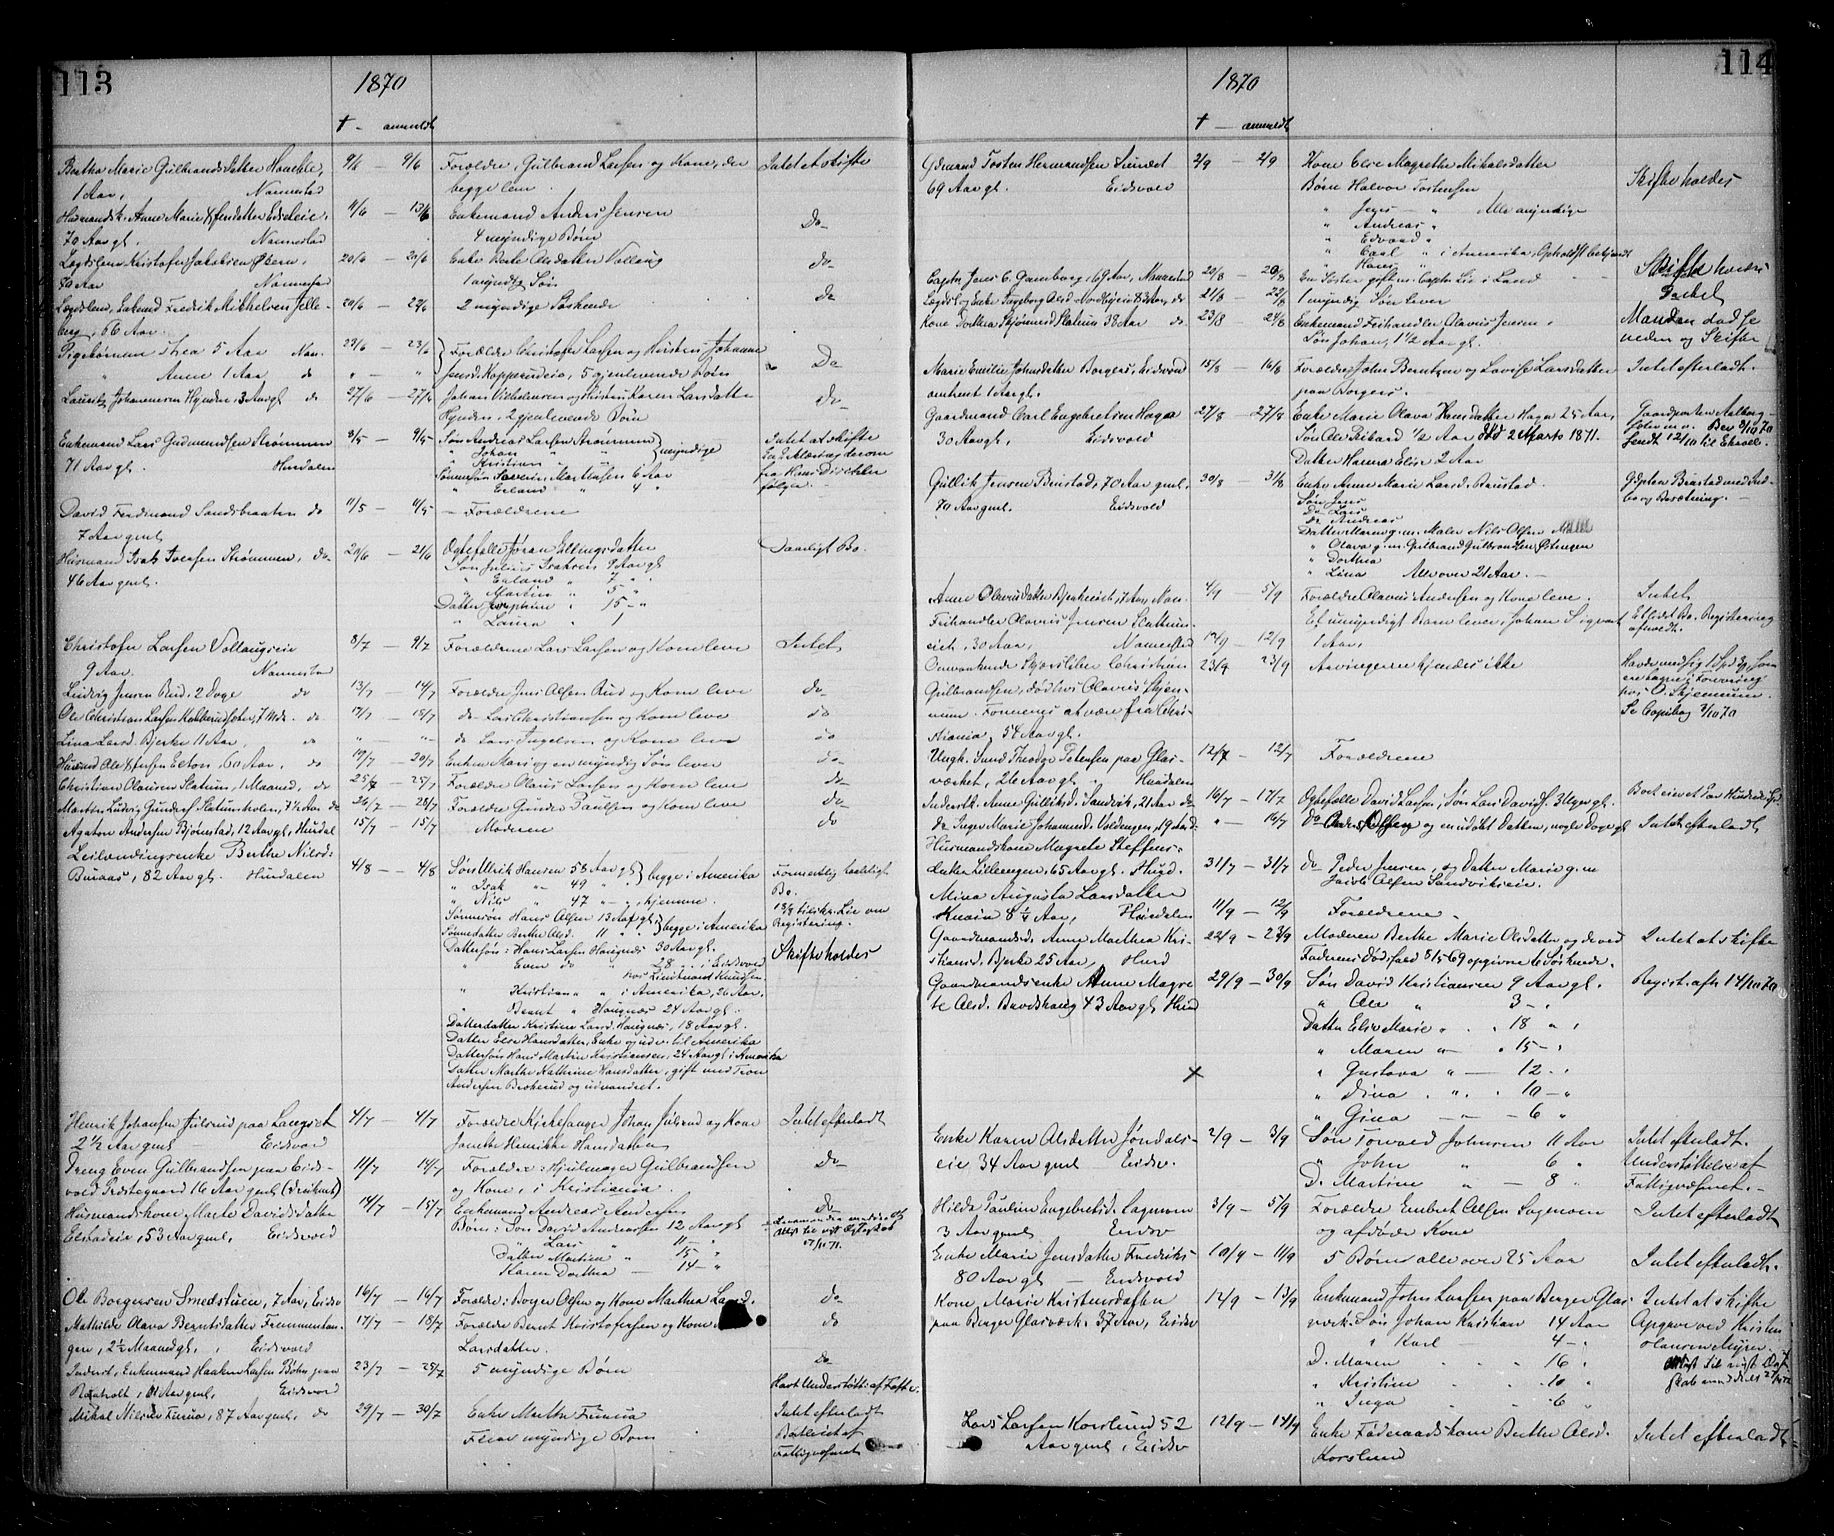 113
1870
† - anmeldt
Bertha Marie Gulbrandsdatter
1 Aar, Nannestad
9/6 — 9/6
Forældre, Gulbrand Larsen og Kone, der
begge leve.
Intet at skifte
Husmandsk. Anne Marie
70 Aar gl. Nannestad
11/6 — 13/6
Enkemand Anders Jensen
4 myndige Børn
Do
Lægdslem Kristofer Jakobsen
70 Aar Nannestad
20/6 — 20/6
Enke Berte Olsdatter Vollaug
1 myndig Søn
do
Lægdslem, Enkemd Fredrik Mikkelsen Jelle-
berg, 66 Aar
20/6 — 2 myndige Søskende
do
Pigebørnene Thea 5 Aar Nan.
" Anne 1 Aar do
23/6 — 23/6
" — "
Forældre Christofer Larsen og Hustru Johanne
Jensd. Kopperudeie, 5 gjenlevende Børn
Do
Lauritz Johannesen Hynden, 3 Aar gl do
27/6 — 27/6
Johan Vilhelmsen og Hustru Karen Larsdatter
Hynden, 2 gjenlevende Børn
do
Enkemand Lars Gudmundsen Strømmen
71 Aar gl. Hurdalen
8/5 — 9/5
Søn Andreas Larsen Strømmen
" Johan " "
" Kristian " "
myndige
Sønnesøn Severin Martinsen 6 Aar
" Erland " 4 "
Intet at skifte
fra Hurdalen
følger.
David Ferdinand Sandsbraaten do
7 Aar gml
11/5 — 11/5
Forældrene
Husmand Isak Iversen Strømmen, do
46 Aar gml.
20/6 — 21/6
Ægtefælle Jøran Ellingsdatter
Søn Julius Isaksen 9 Aar gl
" Erland " 7 "
" Martin " 5 "
Datter Josephine " 15 "
" Laura " 1
Daarligt Bo.
Christofer Larsen Vollaugseie
9 Aar. Nannestad
8/7 — 9/7
Forældrene Lars Larsen og Kone leve
Intet
Ludvig Jensen Rud, 2 Dage do
13/7 — 14/7
Forældre Jens Olsen Rud og Kone leve
do
Ole Christian Larsen do
17/7 — 18/7
do Lars Christiansen og Kone leve
do
Lina Larsd. Bjerke 11 Aar, do
" — "
do Lars Ingelsen og Kone leve
do
Husmd Ole Jensen Elton, 60 Aar, do
19/7 — 20/7
Enken Mari og en myndig Søn lever
do
Christian Olausen Slatum, 1 Maaned, do
25/7 — 25/7
Forældre Olaus Larsen og Kone leve
do
Martin Ludvig Gunders. Slatumsholen, 7½ Aar do
26/7 — 28/7
Forældre Gunder Paulsen og Kone leve
do
Agaton Andersen Bjørnstad, 12 Aar gl, Hurdal
15/7 — 15/7
Moderen
do
Leilændingsenke Berthe Nilsd:
Buraas, 82 Aar gl. Hurdalen
4/8 — 4/8
Søn Ulrik Hansen 58 Aar gl
" Isak " 49 "
begge i Amerika
" Nils " 47 " hjemme.
Sønnesøn Hans Olsen 13 Aar gl
Sønnedatter Berthe Olsd. 11 "
begge i Amerika
Dattersøn: Hans Larsen Haugnæs 30 Aar gl.
" Even do " 28 " i Eidsvold
hos Lieutenant Knudsen.
" Kristian " " i Amerika, 26 Aar.
" Bernt " Haugnæs 24 Aar gl.
Datterdatter Kristine Larsd. Haugnæs, 18 Aar gl.
Datter Else Hansdatter, Enke og udv. til Amerika
Dattersøn Hans Martin Kristiansen, 24 Aar gl i Amerika
Datter Marthe Kathrine Hansdatter, gift med Tron
Andersen Brokerud og udvandret.
Formentlig
Bo.
Registering.
Skifte holdes
Henrik Johansen Julsrud paa Langset
2½ Aar gml Eidsvold
4/7 — 4/7
Forældre Kirkesanger Johan Julsrud og Kone
Janette Henrikke Hansdatter
Intet efterladt
Dreng Even Gulbrandsen paa Eids-
vold Præstegaard 16 Aar gml (druknet)
11/7 — 14/7
Forældre: Hjulmager Gulbrandsen
og Kone, i Kristiania.
Do
Husmandskone Marte Davidsdatter
Elstadeie, 53 Aar gml, Eidsvold
14/7 — 15/7
Enkemand Andreas Andersen
Børn: Søn David Andreassen 12 Aar gl
" Lars " 11 "
Datter Martine " 15 "
Karen Dorthea — 14 "
Do
Ole Borgersen Smedstuen, 7 Aar, Eidsv
16/7 — 16/7
Forældre: Borger Olsen og Kone Marthea Larsd.
do
Mathilde Olava Berntsdatter
gere, 2½ Maaned gl, Eidsvold
17/7 — 18/7
Forældre Bernt Kristofersen og Kone
Larsdatter.
do
Inderst, Enkemand Haaken Larsen Bøhn paa
Raaholt, Aar gml, Eidsvold
23/7 — 25/7
5 myndige Børn
Do
Havt Understøtt: af Fattv.
Mikal Nilsen Furua, 87 Aar gml, do
29/7 — 30/7
Enke Marthe Furua
Flere myndige Børn
Intet efterladt
Fattigvæsenet
114
1870
† — anmeldt
Gdmand Torsten Hermandsen Sundet
69 Aar gl. Eidsvold
2/9 — 2/9
Kone Else Magrethe Mikalsdatter
Børn Halvor Torstensen
" Jens — " Alle myndige
" Andreas "
" Edvard "
" Carl " i Amerika, Opholdst. ubekjendt
" Hans "
Skifte holdes
Captn Jens C. Gamborg, 69 Aar, Nannestad
20/8 — 20/8
En Søster gift m. Captn Lie i Land
Skifte holdes
Lægdsl. Enke Ingeborg Olsd. 83 Aar, do
21/8 — 22/8
1 myndig Søn lever
Intet
Kone Dorthea Slatum 38 Aar do
23/8 — 24/8
Enkemand Frihandler Olavus Jensen.
Søn Johan, 1½ Aar gl.
Manden og Skifter
Marie Emilie Johnsdatter Borgers, Eidsvold
omtrent 1 Aar gl.
15/8 — 16/8
Forældre John Berntsen og Lovise Larsdatter
paa Borgers.
Intet efterladt.
Gaardmand Carl Engebretsen Haga
30 Aar gl, Eidsvold
27/8 — 27/8
Enke Marie Olava Hansdatter Haga 25 Aar,
Søn Ole Rikard ½ Aar død 2 Marts 1871.
Datter Hanna Elise 2 Aar
Gaardparten Aalborg
sendt 12/10 til
Gullik Jensen Brustad, 70 Aar gml.
70 Aar gml. Eidsvold
30/8 — 31/8
Enke Anne Marie Larsd. Brustad.
Søn Jens
Do Lars
Do Andreas
Datter Maren g. m. Maler Nils Olsen
" Olava g. m. Gulbrand Gulbrandsen
" Dorthea
" Lina Alle over 21 Aar.
Gdpten Brustad med Ind-
bo og Besætning.
Anne Olavusdatter Bjerkeeiet, 7 Aar, Nan.
4/9 — 5/9
Forældre Olavus Andersen og Kone leve.
Intet
Frihandler Olavus Jensen Slattum-
eiet, 30 Aar, Nannestad
12/9 — 12/9
Et umyndigt Barn lever, Johan Sigvart
1 Aar,
Et lidet Bo. Registrering
afholdt.
Omvankende Skjærsliber Christian
Gulbrandsen, død hos Olavus Skjen-
num. Formenes at være fra Chri-
stiania, 54 Aar gl.
23/9 — 23/9
Arvingerne kjendes ikke
Havde med sig 1 Spd 3
ere tagne i Forvaring
hos O. Skjennum.
Se Copibog 3/10 70
Ungk. Svend Theodor Petersen paa Glas-
værket, 26 Aar gl, Hurdalen
12/7 — 12/7
Forældrene
Inderstk. Anne Gulliksd. Sandvik, 21 Aar do
16/7 — 17/7
Ægtefælle David Larsen, Søn Lars Davids. 3 Uger gl.
Boet eier et Par Hundrede Spd
do Inger Marie Johannesd. Voldengen, 19 Aar d.
" — 16/7
Do Olsen og en udøbt Datter, nogle Dage gl
Intet efterladt
Husmandskone Magrete Steffens-
datter Lilleengen, 65 Aar gl. Hurd.
31/7 — 31/7
do Peder Jensen, og Datter Marie g. m.
Jacob Olsen Sandvikseie.
Mina Augusta Larsdatter
Knaia 8¼ Aar, Hurdalen
11/9 — 12/9
Forældrene.
Gaardmandsd. Anne Marthea Kri-
stiansd. Bjerke 25 Aar, Hurd
22/9 — 23/9
Moderen Berthe Marie Olsdatter og de ved
Faderens Dødsfald 5/5 69 opgivne 6 Søskende.
Intet at skifte
Gaardmandsenke Anne Magre-
te Olsd. Bundshaug 43 Aar gl, Hurd
29/9 — 30/9
Søn David Kristiansen 9 Aar gl.
" Ole " 3 "
Datter Elise Marie " 18 "
" Maren " 15 "
" Gustava " 12 "
" Dina " 10 "
" Gina " 6 "
Regist. afh 14/10 70
X
Enke Karen Olsdatter Jøndals-
eie 34 Aar gml Eidsv.
2/9 — 3/9
Søn Torvald Johnsen 11 Aar
" John " 6 "
D. Martine " 8 "
Intet efterladt.
Understøttelse af
Fattigvæsenet.
Hilda Pauline Engebretsd. Sagmoen
3 Aar gml Eidsv
3/9 — 5/9
Forældre Embret Olsen Sagmoen
og afdøde Kone
Intet efterladt
Enke Marie Jensdatter Fredriks-
80 Aar gl — Eidsvold
10/9 — 11/9
5 Børn alle over 25 Aar
Intet efterladt.
Kone Marie Kristensdatter
paa Berger Glasværk. 37 Aar, Eidsv
12/9 — 13/9
Enkemand John Larsen paa Berger Glas-
værk. Søn Johan Kristian 14 Aar
" Karl — 4 "
D. Maren " 16 "
" Kristine " 10 "
" Inga " 6 "
Intet at skifte
Opgave ved Kristen
Hansen Myren.
Lars Larsen Korslund 52
Aar gml, Eidsv
12/9 — 14/9
Enke Føderaadskone Berthe Olsd.
Korslund
Intet efterladt